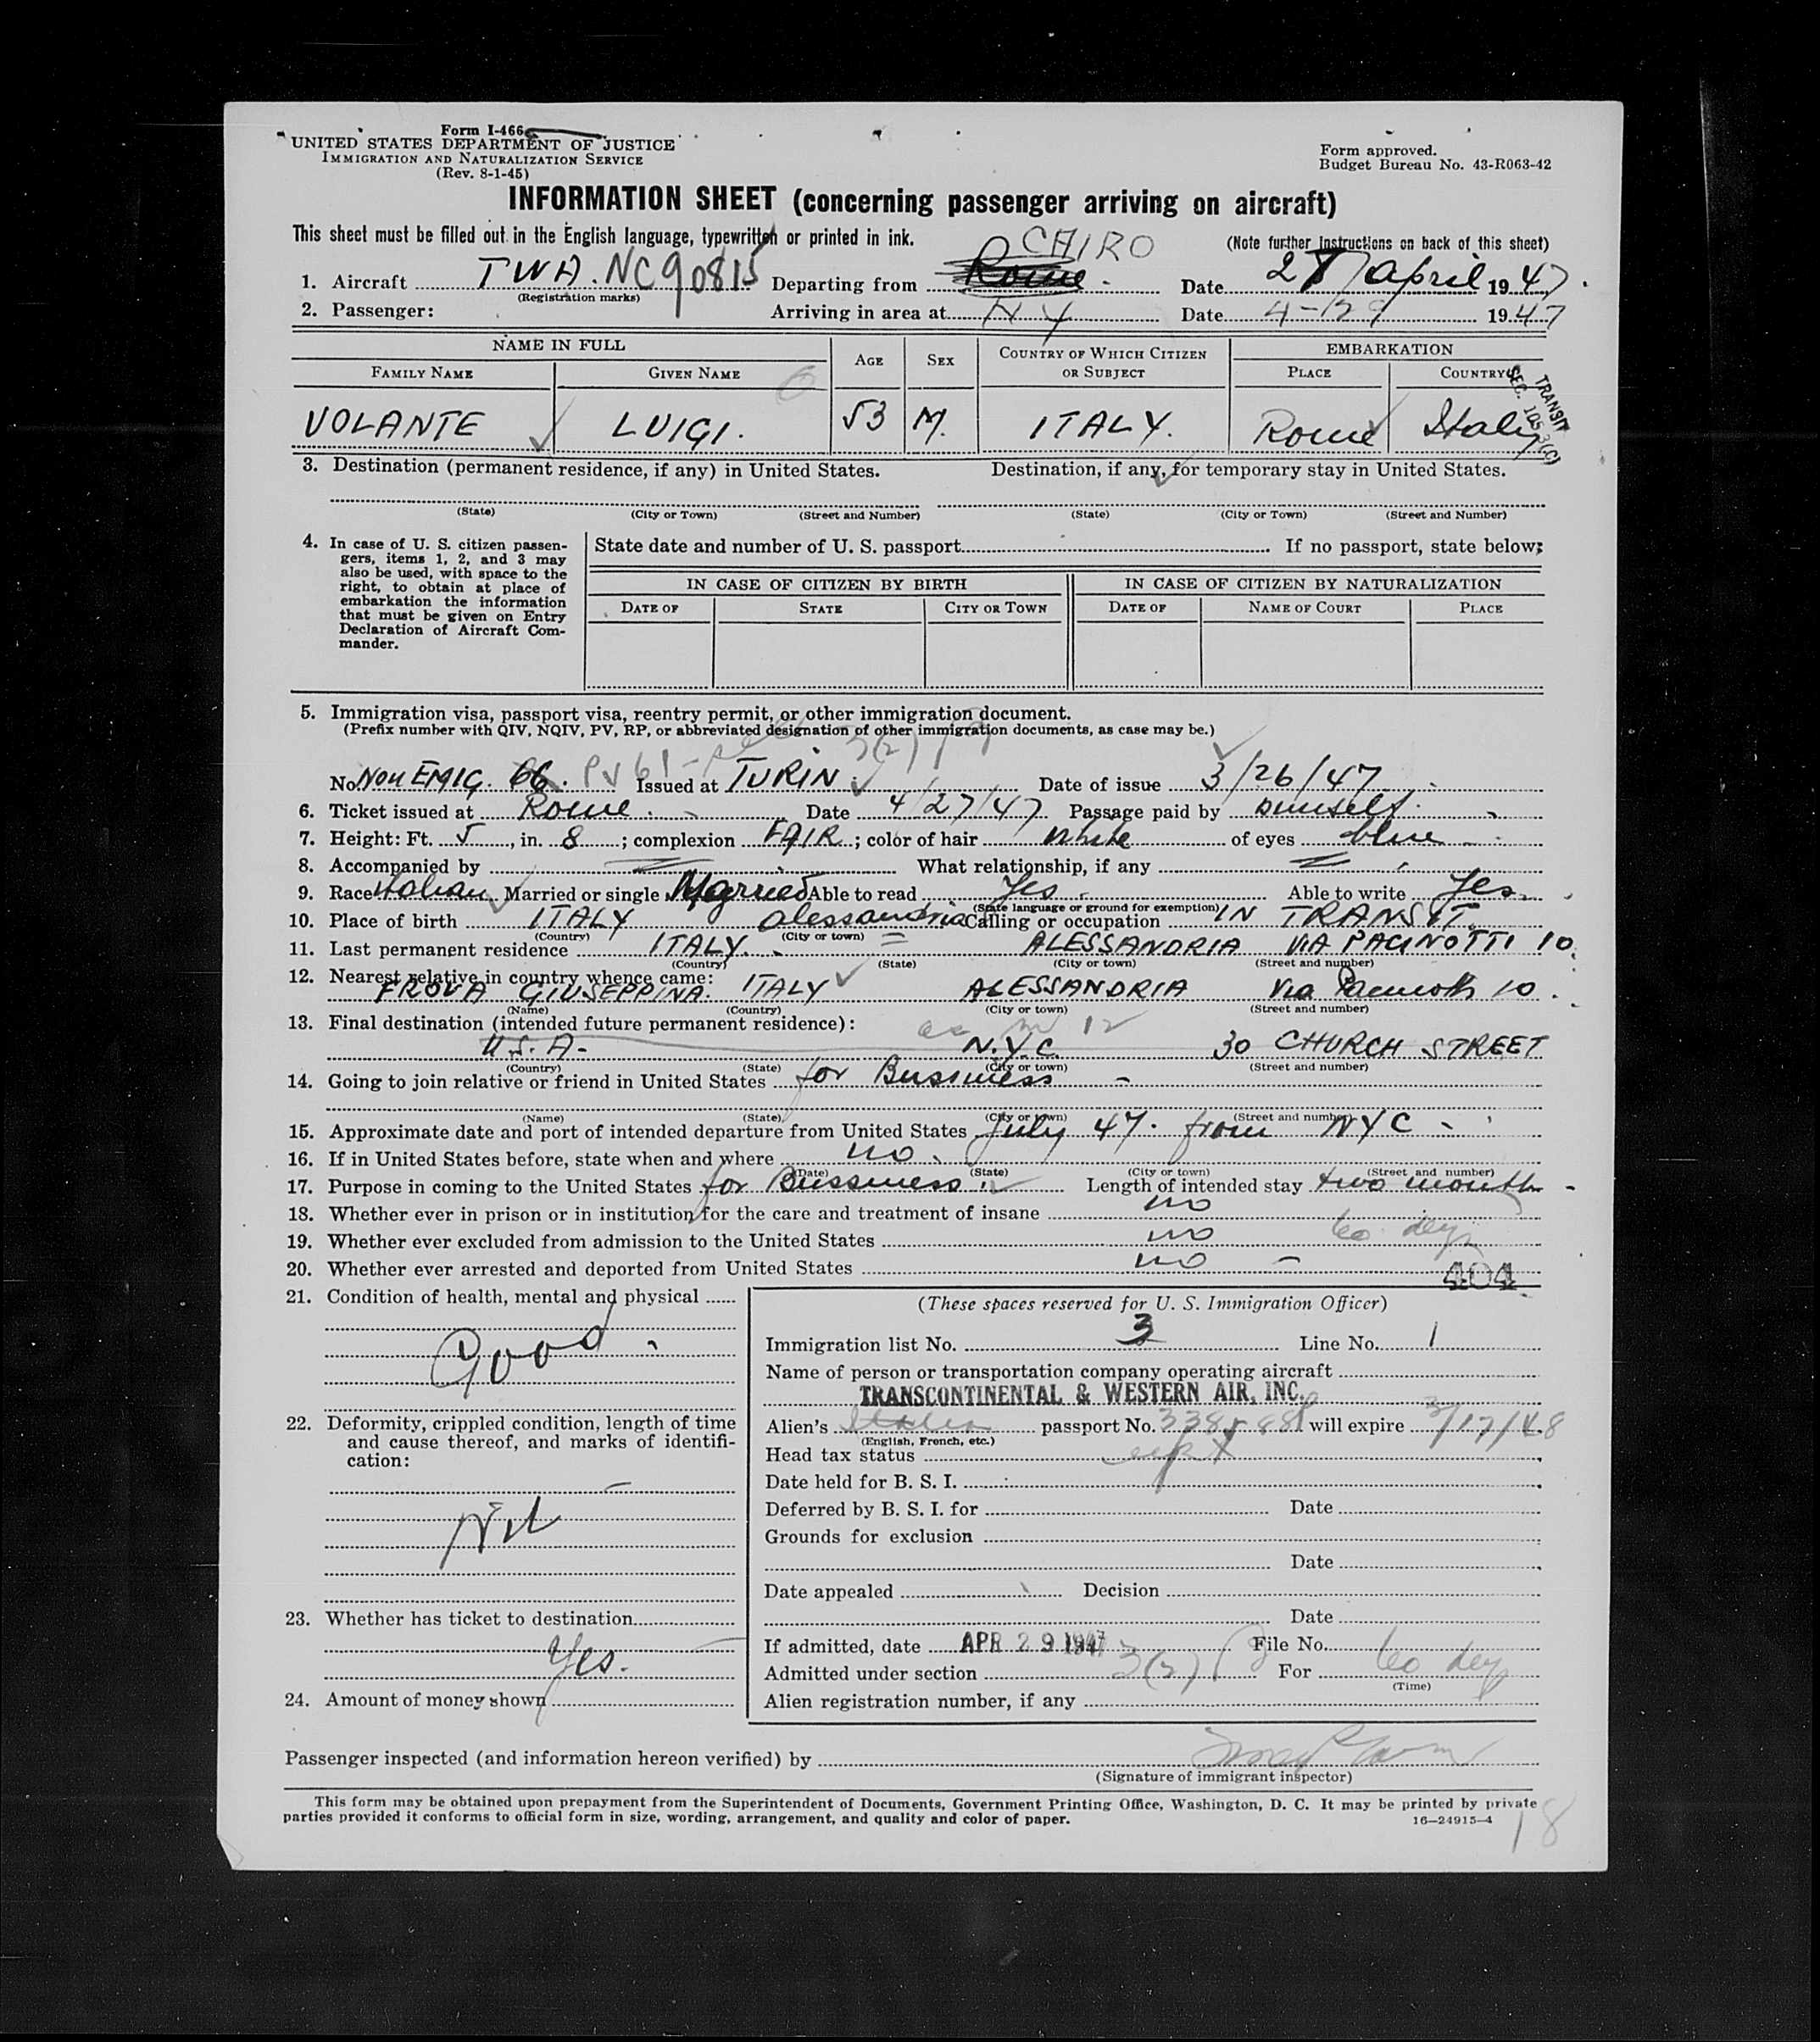 Form I-466
UNITED STATES DEPARTMENT OF JUSTICE
IMMIGRATION AND NATURALIZATION SERVICE
(Rev. 8-1-45)
Form approved.
Budget Bureau No. 43-R063-42
INFORMATION SHEET (concerning passenger arriving on aircraft)
This sheet must be filled out in the English language, typewritten or printed in ink.
(Note further instructions on back of this sheet)
CAIRO
1. Aircraft TWA. NC90815 Departing from Rome. Date 27 April 1947.
(Registration marks)
2. Passenger: Arriving in area at NY Date 4-29 1947
NAME IN FULL AGE SEX COUNTRY OF WHICH CITIZEN OR SUBJECT EMBARKATION
FAMILY NAME GIVEN NAME PLACE COUNTRY
TRANSIT
SEC. 105.3(C)
VOLANTE LUIGI. 53 M. ITALY. Rome Italy
3. Destination (permanent residence, if any) in United States. Destination, if any, for temporary stay in United States.
(State) (City or Town) (Street and Number) (State) (City or Town) (Street and Number)
4. In case of U. S. citizen passen-
gers, items 1, 2, and 3 may
also be used, with space to the
right, to obtain at place of
embarkation the information
that must be given on Entry
Declaration of Aircraft Com-
mander.
State date and number of U. S. passport If no passport, state below:
IN CASE OF CITIZEN BY BIRTH IN CASE OF CITIZEN BY NATURALIZATION
DATE OF STATE CITY OR TOWN DATE OF NAME OF COURT PLACE
5. Immigration visa, passport visa, reentry permit, or other immigration document.
(Prefix number with QIV, NQIV, PV, RP, or abbreviated designation of other immigration documents, as case may be.)
3(2)
No. Non EMIG. 66. PV 61 Issued at TURIN Date of issue 3/26/47
6. Ticket issued at Rome. Date 4/27/47 Passage paid by
7. Height: Ft. 5, in. 8; complexion FAIR; color of hair white of eyes blue
8. Accompanied by What relationship, if any
9. Race Italian Married or single Married Able to read Yes. Able to write Yes.
(State language or ground for exemption)
10. Place of birth ITALY Alessandria Calling or occupation IN TRANSIT.
(Country) (City or town)
11. Last permanent residence ITALY. ALESSANDRIA VIA PACINOTTI 10.
(Country) (State) (City or town) (Street and number)
12. Nearest relative in country whence came:
FROVA GIUSEPPINA. ITALY ALESSANDRIA Via Pacinotti 10.
(Name) (Country) (City or town) (Street and number)
13. Final destination (intended future permanent residence): as in 12
U.S.A. N.Y.C. 30 CHURCH STREET
(Country) (State) (City or town) (Street and number)
14. Going to join relative or friend in United States for Bussiness
(Name) (State) (City or town) (Street and number)
15. Approximate date and port of intended departure from United States July 47. from NYC
16. If in United States before, state when and where no.
(Date) (State) (City or town) (Street and number)
17. Purpose in coming to the United States for Bussiness Length of intended stay two month
18. Whether ever in prison or in institution for the care and treatment of insane no
19. Whether ever excluded from admission to the United States no 60 days
20. Whether ever arrested and deported from United States no
404
21. Condition of health, mental and physical
Good.
22. Deformity, crippled condition, length of time
and cause thereof, and marks of identifi-
cation:
Nil
23. Whether has ticket to destination
Yes.
24. Amount of money shown
(These spaces reserved for U. S. Immigration Officer)
Immigration list No. 3 Line No. 1
Name of person or transportation company operating aircraft
TRANSCONTINENTAL & WESTERN AIR, INC.
Alien's Italian passport No. will expire 3/17/48
(English, French, etc.)
Head tax status
Date held for B. S. I.
Deferred by B. S. I. for Date
Grounds for exclusion
Date
Date appealed Decision
Date
If admitted, date APR 29 1947 File No.
Admitted under section 3(2) For 60 days
(Time)
Alien registration number, if any
Passenger inspected (and information hereon verified) by
(Signature of immigrant inspector)
This form may be obtained upon prepayment from the Superintendent of Documents, Government Printing Office, Washington, D. C. It may be printed by private
parties provided it conforms to official form in size, wording, arrangement, and quality and color of paper.
16—24915-4
18